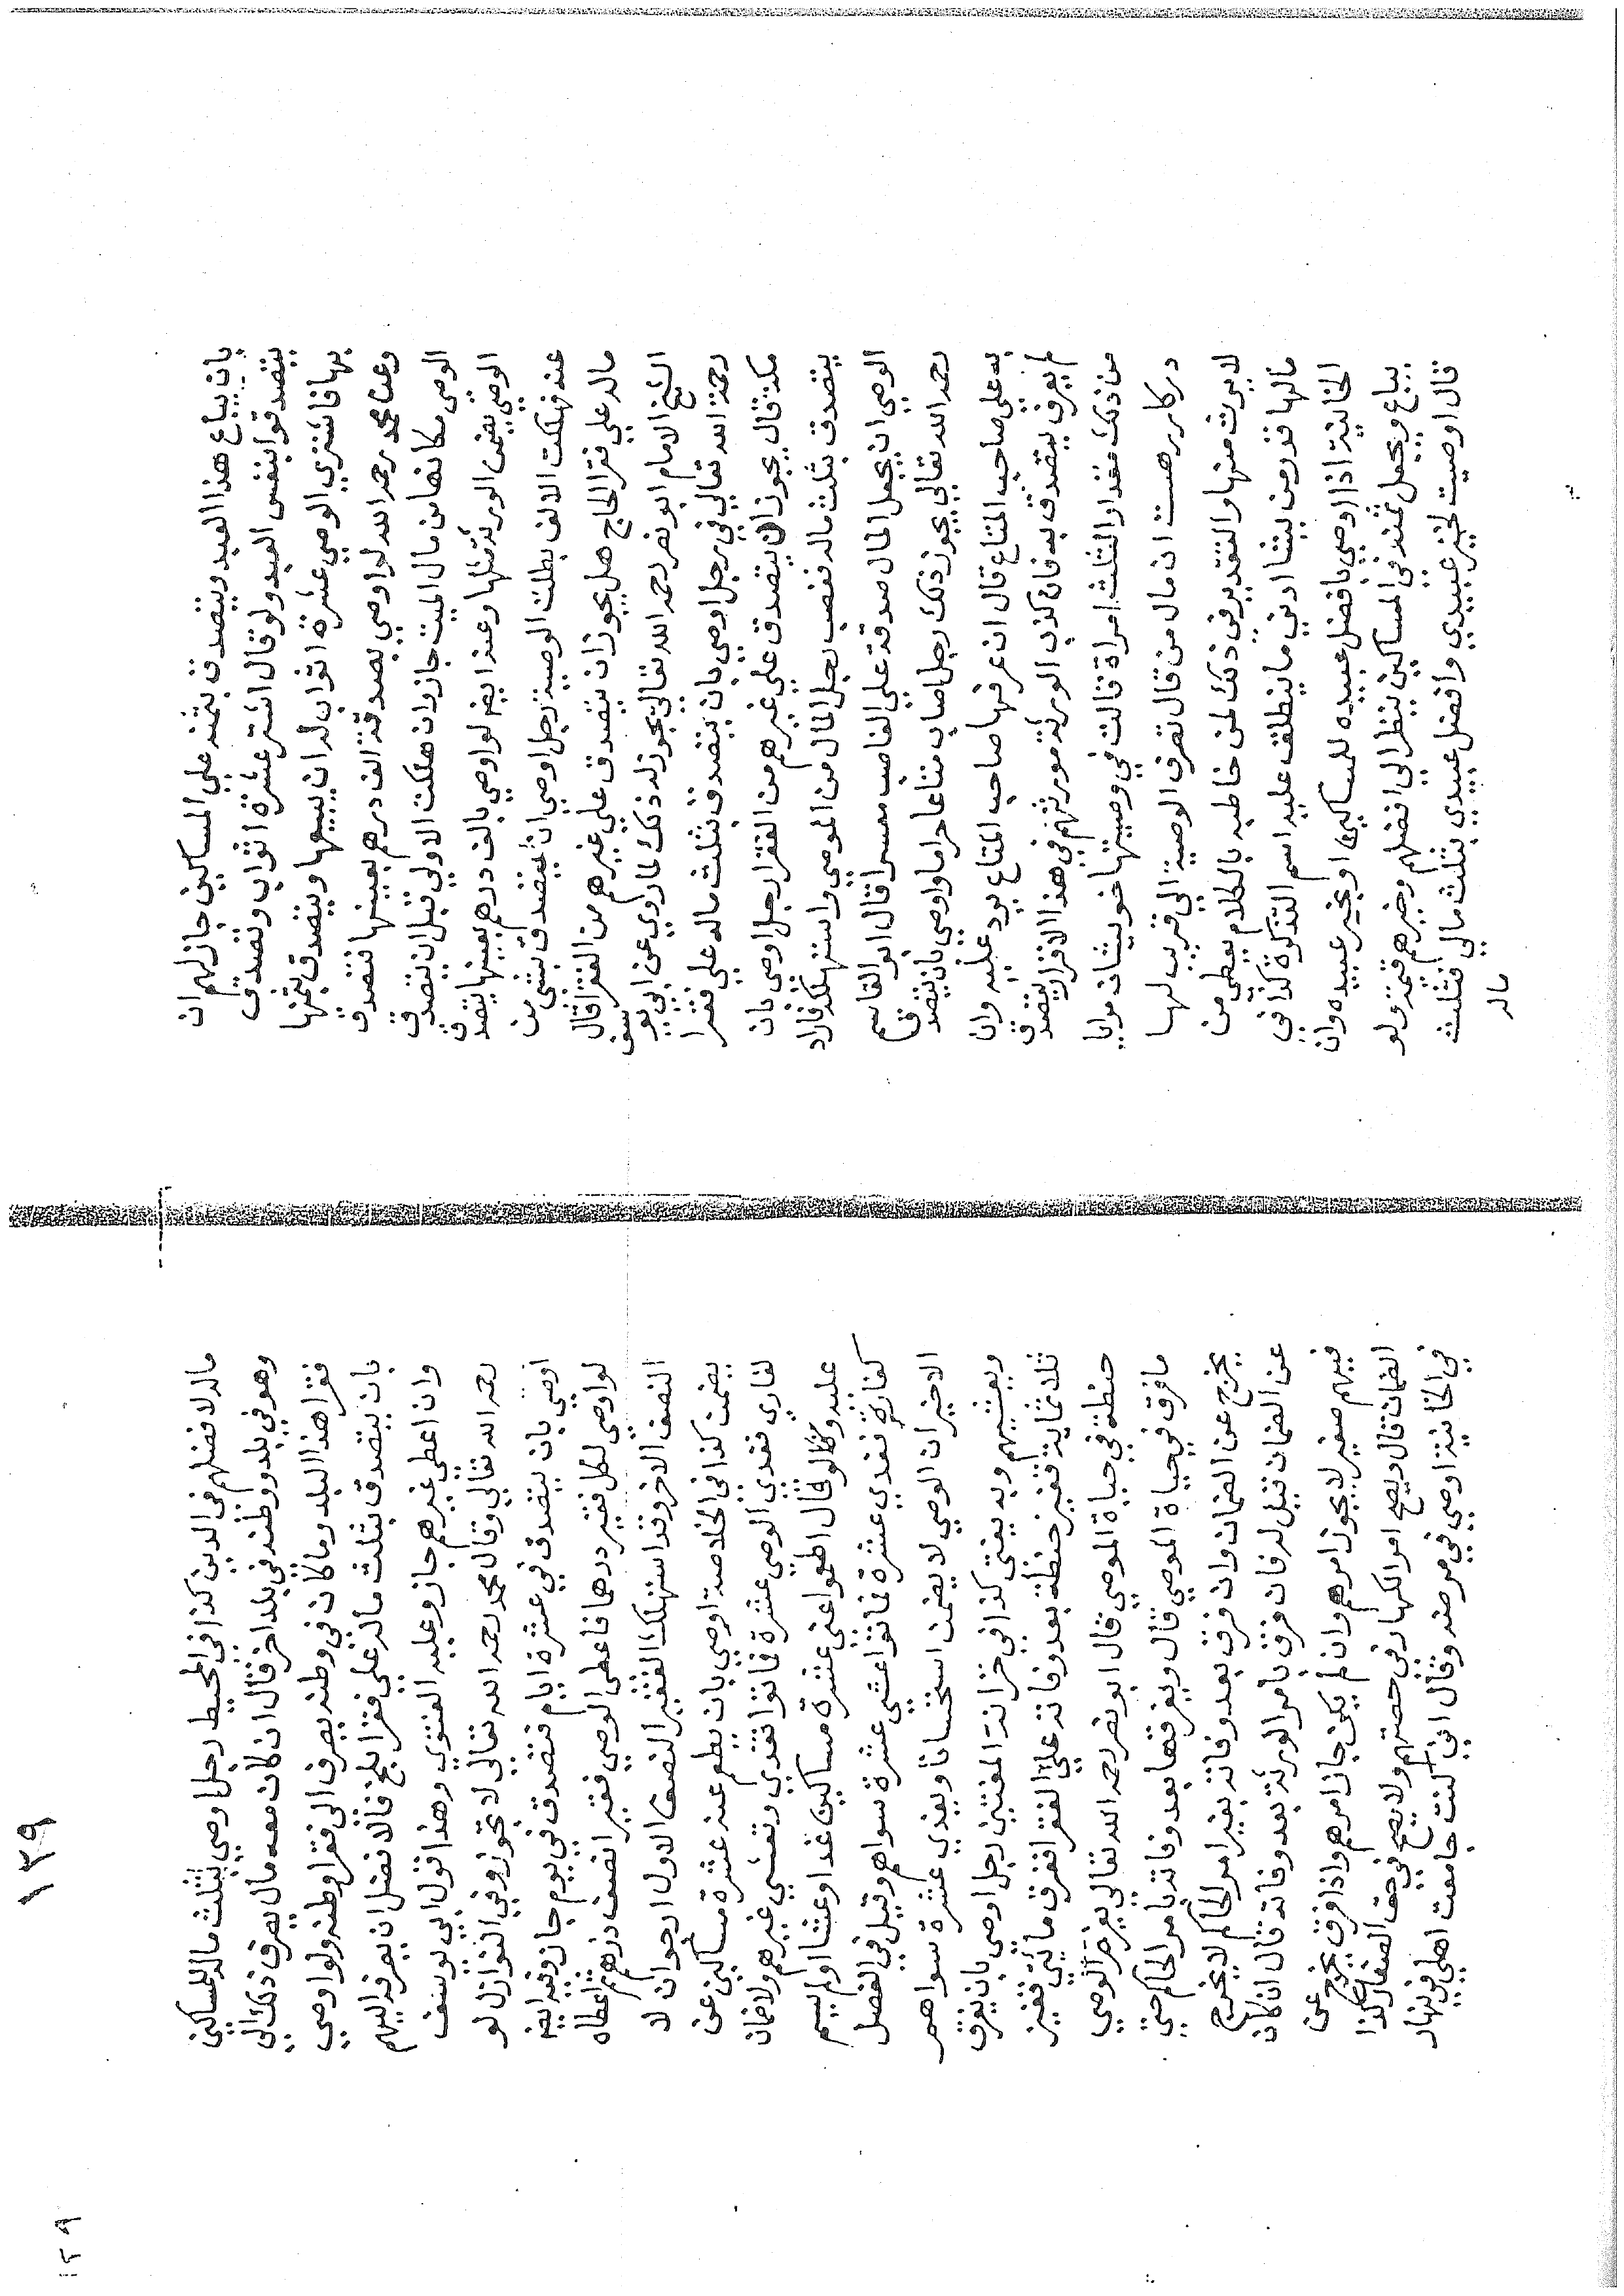 بان يباع هذا العبد ويتصدق بثمنه علي المساكين جاز لهم ان
يتصدقوا بنفس العبد ولو قال اشتر عشرة اثواب وتصدق
بها فاشتري الوصي عشرة اثواب له ان يبيعها ويتصدق بثمنها
وعن محمد رحمه الله لو اوصي بصدقة الف درهم بعينها فتصدق
الوصي مكانها من مال الميت جاز وان هلكت الاولي قبل ان يتصدق
الوصي يضمن الورثة مثلها وعنه ايضا لو اوصي بالف درهم بعينها يتصدق
عنه فهلكت الالف بطلت الوصية رجل اوصي ان يتصدق بشي من
ماله علي فقرا الحاج هل يجوز ان يتصدق علي غيرهم من الفقرا قال
الشيخ الامام ابو نصر رحمه الله تعالي يجوز له ذلك لما روي عن ابي يوسف
رحمة الله تعالي في رجل اوصي بان يتصدق بثلث ماله علي فقرا
مكة قال يجوز ان يتصدق علي غيرهم من الفقرا رجل اوصي بان
يتصدق بثلث ماله فغصب رجل المال من الموصي واستهلكه فاراد
الوصي ان يجعل المال صدقة علي الغاصب معسرا قال ابو القاسم
رحمه الله تعالي يجوز ذلك رجل اصاب متاعا حراما واوصي بان يتصدق
به علي صاحب المتاع قال ان عرفها صاحب المتاع يرد عليه وان
لم يعرف يتصدق به فان كذب الورثة مورثهم في هذا الاقرار يتصدق
من ذلك مقدار الثلث امراة قالت في وصيتها خويشان مرايا
دركار رهست ان مال من قال تصرف الوصية الي قريب لها
لا يرث منها والتقدير في ذلك لمن خاطبه بالكلام يعطي من
مالها قدر من يشا ادني ما ينطلق عليه اسم التذكرة كذا في
الخانية اذا اوصي بافضل عبيده للمساكين او بخير عبيده وان
يباع ويجعل ثمنه في المساكين ينظر الي افضلهم وخيرهم قيمة ولو
قال اوصيت لخير عبيدي وافضل عبيدي بثلث مالي فثلث
ماله
ماله لافضلهم في الدين كذا في المحيط رجل اوصي بثلث ماله للمساكين
وهو في بلد ووطنه في بلد اخر قال ان كان معه مال يصرف ذلك الي
فقرا هذا البلد وما كان في وطنه يصرف الي فقرا وطنه ولو اوصي
بان يتصدق بثلث ماله علي فقرا بلخ فالافضل ان يصرف اليهم
وان اعطي غيرهم جاز وعليه الفتوي وهذا قول ابي يوسف
رحمه الله تعالي وقال محمد رحمه الله تعالي لا يجوز وفي النوازل لو
اوصي بان يتصدق في عشرة ايام فتصدق في يوم جاز وفيه ايضا
لو اوصي لكل فقير درهما فاعطي الوصي فقيرا نصف درهم ثم اعطاه
النصف الاخر وقد استهلك الفقير النصف الاول ارجوا ان لا
يضمن كذا في الخلاصة اوصي بان يطعم عنه عشرة مساكين عن
كفاري فغدي الوصي عشرة فماتوا تغدي وتعشي غيرهم ولا ضمان
عليه وكالو قال اطعموا عني عشرة مساكين غدا وعشا اولم يسم
كفارة فغدي عشرة فماتوا عشي عشرة سواهم وقيل في الفصل
الاخير ان الوصي لا يضمن استحسانا ويغدي عشرة سواهم
ويعشيهم وبه يفتي كذا في خزانة المفتين رجل اوصي بان يفرق
ثلاثماية قفيز حنطة بعد وفاته علي الفقرا ففرق مأيتي قفيز
حنطة في حياة الموصي قال ابو نصر رحمه الله تعالي يغرم الوصي
ما فرق في حياة الموصي قال ويفرقها بعد وفاته بامر الحاكم حتي
يخرج عن الضمان وان فرق بعد وفاته بغير امر الحاكم لا يخرج
عن الضمان قيل له فان فرق بامر الورثة بعد وفاته قال ان كان
فيهم صغير لا يجوز امرهم وان لم يكن جاز امرهم واذا فرق يخرج عن
الضمان قال ويصح امر الكبار في حصتهم ولا يصح في حق الصغار كذا
في الخانية اوصي في مرضه وقال اني كنت جامعت اهلي في نهار
١٣٩
١٣٩